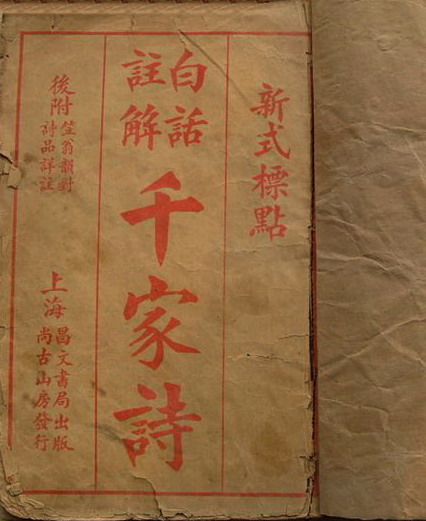 新式標點
白話
註解
千家詩
後附
笠翁韻對
詩品詳註
上海
昌文書局出版
尚古山房發行